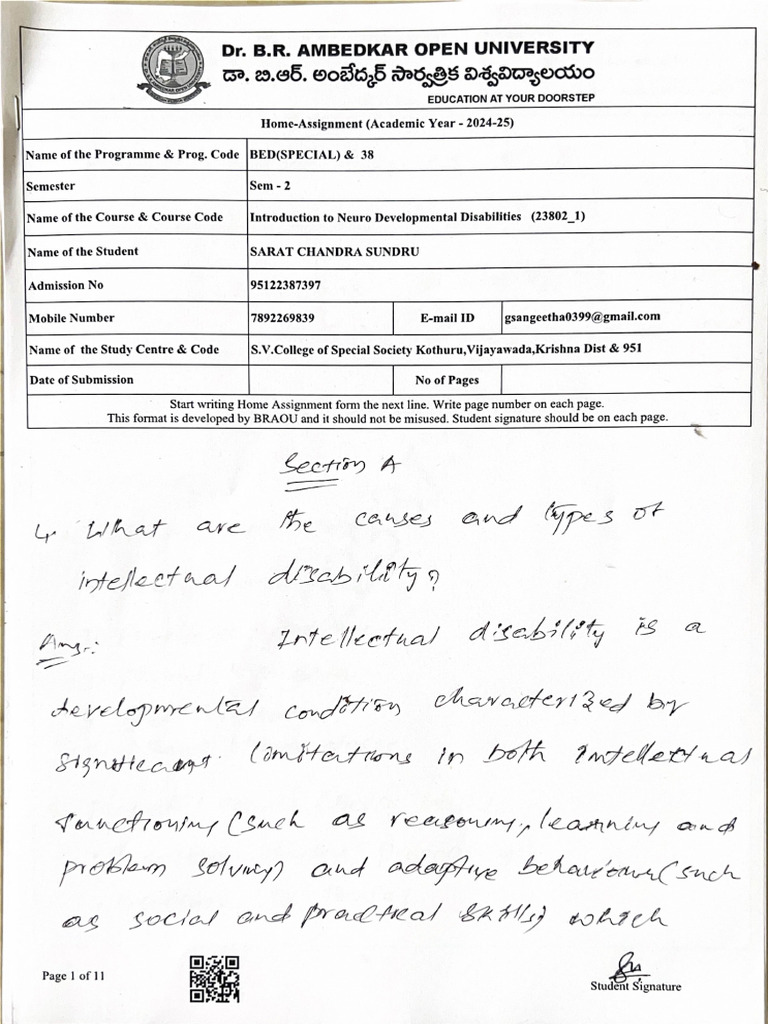 Dr. B.R. AMBEDKAR OPEN UNIVERSITY
డా. బి.ఆర్. అంబేద్కర్ సార్వత్రిక విశ్వవిద్యాలయం
EDUCATION AT YOUR DOORSTEP
Home-Assignment (Academic Year - 2024-25)
Name of the Programme & Prog. Code BED(SPECIAL) & 38
Semester Sem - 2
Name of the Course & Course Code Introduction to Neuro Developmental Disabilities (23802_1)
Name of the Student SARAT CHANDRA SUNDRU
Admission No 95122387397
Mobile Number 7892269839 E-mail ID gsangeetha0399@gmail.com
Name of the Study Centre & Code S.V.College of Special Society Kothuru,Vijayawada,Krishna Dist & 951
Date of Submission No of Pages
Start writing Home Assignment form the next line. Write page number on each page.
This format is developed by BRAOU and it should not be misused. Student signature should be on each page.
Section A
What are the causes and types of
intellectual disability?
Ans:
Intellectual disability is a
developmental condition characterized by
significant limitations in both intellectual
functioning (such as reasoning, learning and
problem solving) and adaptive behaviour (such
as social and practical skills) which
Page 1 of 11
Student Signature